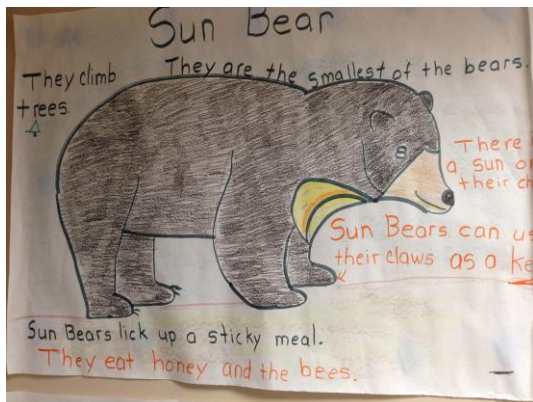 Sun Bear
They climb
trees.
They are the smallest of the bears.
There
a sun
their
Sun Bears can
their claws as a
Sun Bears lick up a sticky meal.
They eat honey and the bees.